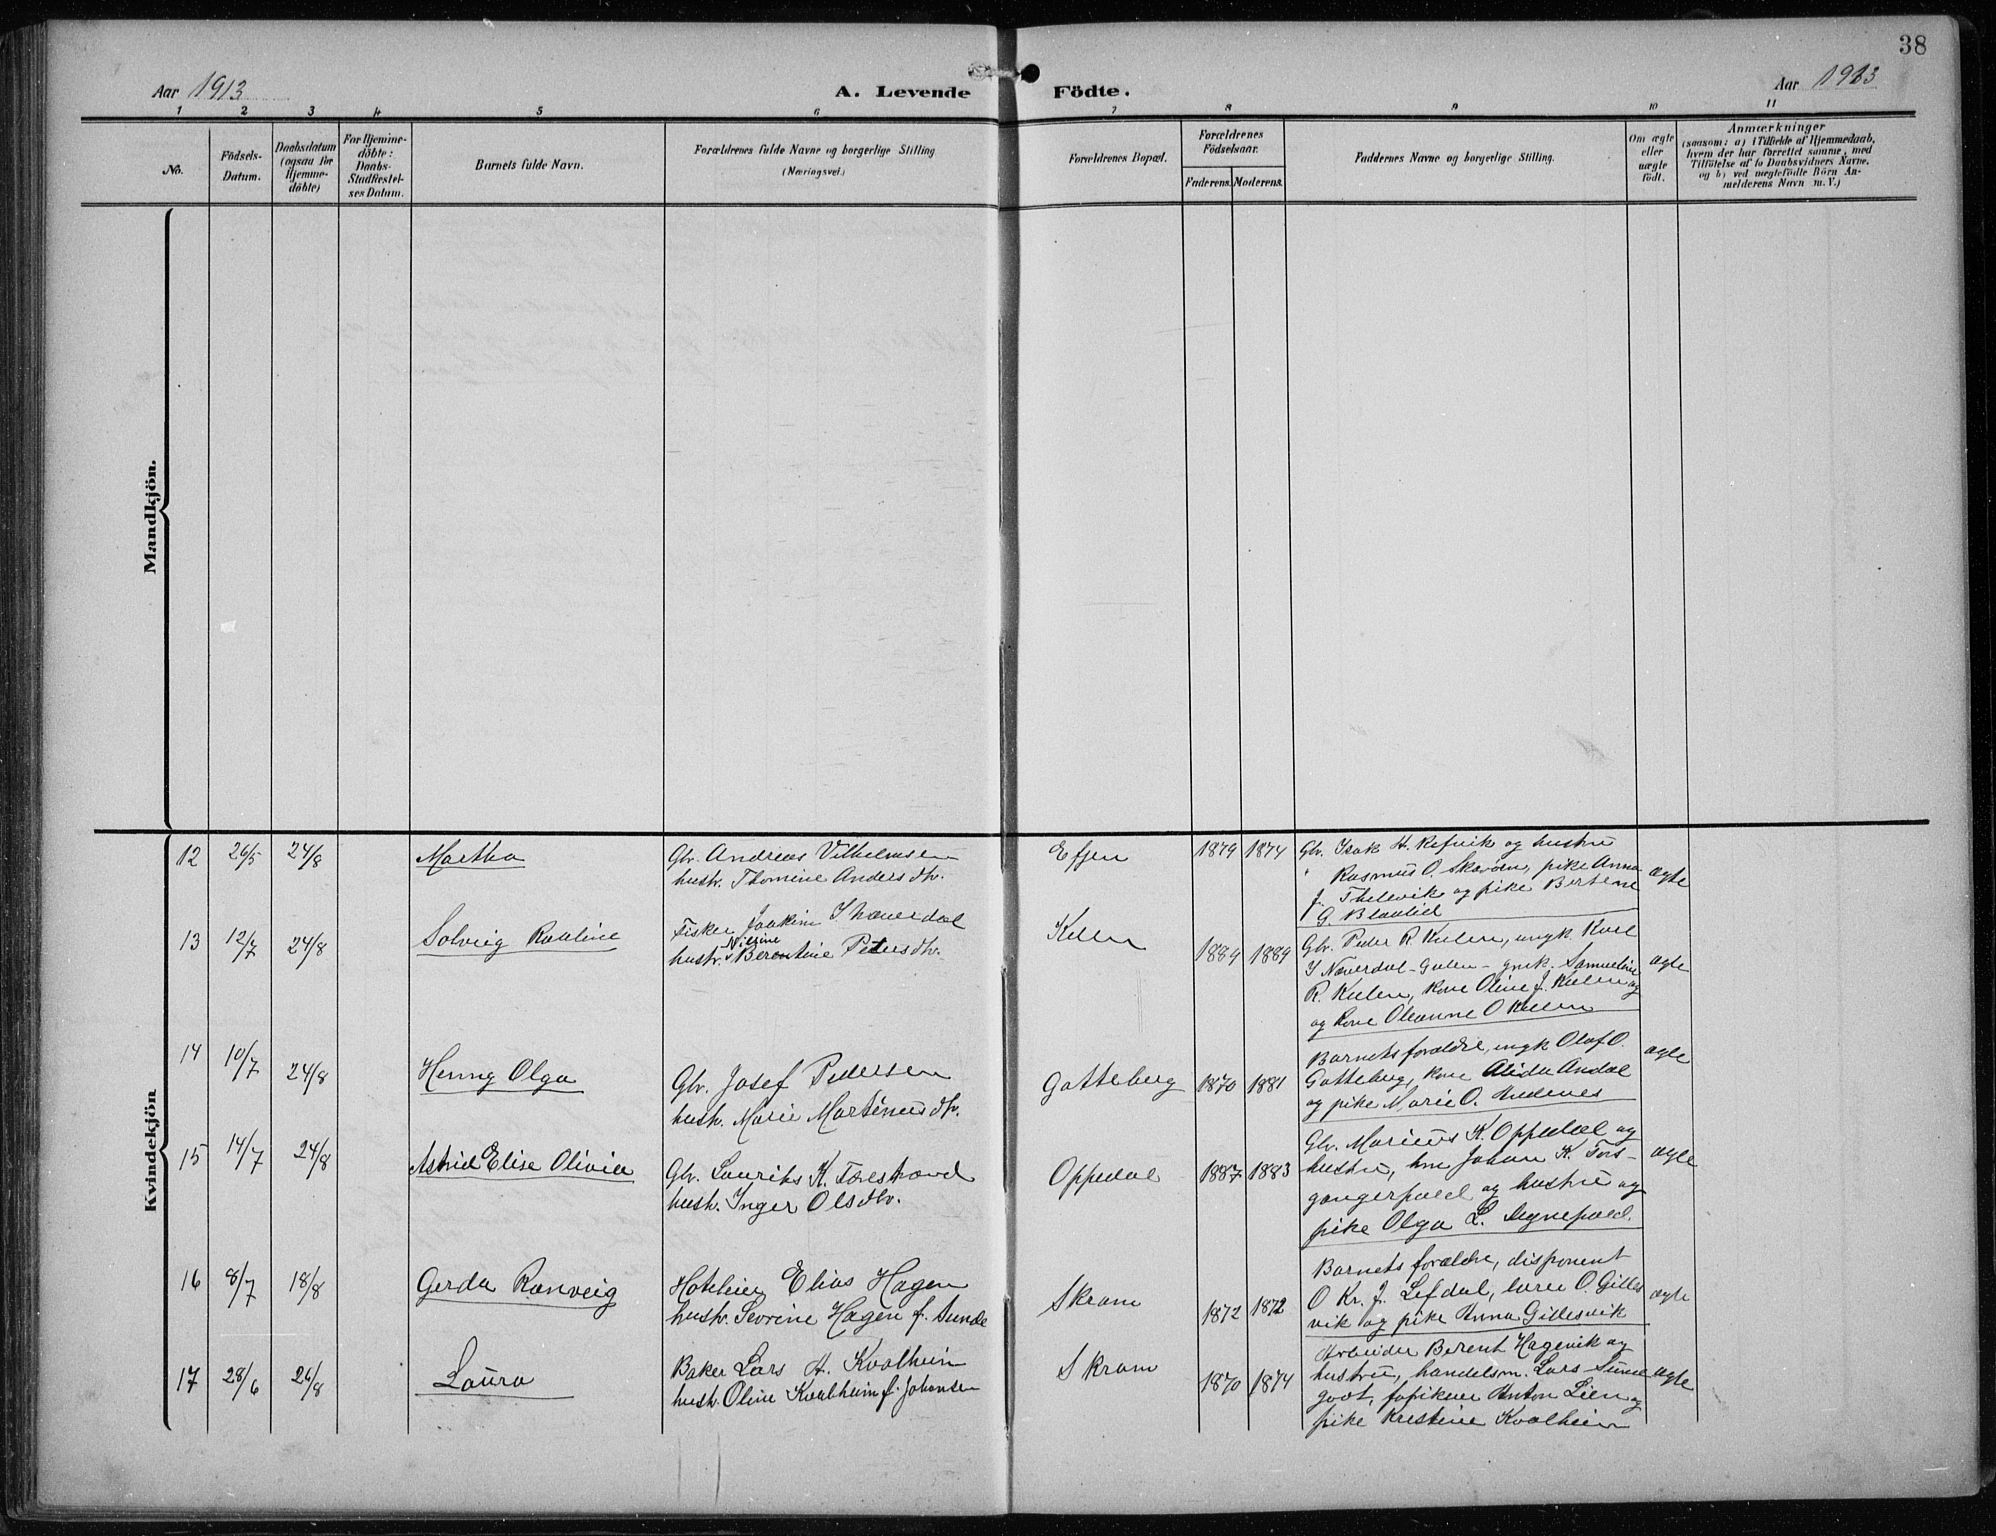 38
Aar 1913
A. Levende Födte.
Aar 1913
1 2 3 4 5 6 7 8 9 10 11
No.
Födsels-
Datum.
Daabsdatum
(ogsaa for
Hjemme-
döbte)
For Hjemme-
döbte:
Daabs-
Stadfæstel-
ses Datum.
Barnets fulde Navn.
Forældrenes fulde Navne og borgerlige Stilling
(Næringsvei.)
Forældrenes Bopæl.
Forældrenes
Födselsaar.
Faderens. Moderens.
Faddernes Navne og borgerlige Stilling.
Om ægte
eller
uægte
födt.
Anmærkninger
(saasom: a) i Tilfælde af Hjemmedaab,
hvem der har forrettet samme, med
Tilföielse af to Daabsvidners Navne.
og b) ved uægtefödte Börn An-
melderens Navn m. V.)
Mandkjön.
Kvindekjön
12 26/5 24/8 Martha
Gbr. Andreas Vilhelmsen
hustr. Thomine Andersdtr.
Efjen 1879 1874
Gbr. Isak H. Refvik og hustru
Rasmus O. Skaarøn, pike Anna
J. Thelevik og pike Bertene
G. Blaalid
ægte
13 12/7 24/8 Solveig Rauline
Fisker Joakim I Næverdal
Nilsine
hustr. Berentine Petersdtr.
Kelen 1889 1889
Gbr. Peder R. Keelen, ungk Karl
I Næverdal - Gulen - gmk. Samueline
R. Keelen, kone Oline J. Keelen og
og kone Oleanne O Keelen
ægte
14 10/7 24/8 Henny Olga
Gbr. Josef Pedersen
hustr. Marie Martinusdtr.
Gotteberg 1870 1881
Barnets forældre, ungk Olaf O.
Gotteberg, kone Alida Andal
og pike Marie O. Indenes
ægte
15 14/7 24/8 Astrid Elise Olivia
Gbr. Lauriks K. Forestrand
hustr. Inger Olsdtr.
Oppedal 1887 1883
Gbr. Marius K. Oppedal og
hustru, hrr Johan K. Fors-
gangerpold og hustru og
pike Olga L. Degnepold.
ægte
16 8/7 18/8 Gerda Ranveig
Hoteleier Elias Hagen
hustr. Sevrine Hagen f. Sunde
Skram 1872 1872
Barnets forældre, disponent
O Kr. J. Lefdal, lærer O. Gilles
vik og pike Anna Gillesvik
ægte
17 28/6 26/8 Laura
Baker Lars A. Kvalheim
hustr. Oline Kvalheim f. Johansen
Skram 1870 1874
Arbeider Berent Hagevik og
hustru, handelsm. Lars Sunne
godt, fabrikeier Anton Lien og
pike Kristine Kvalheim
ægte